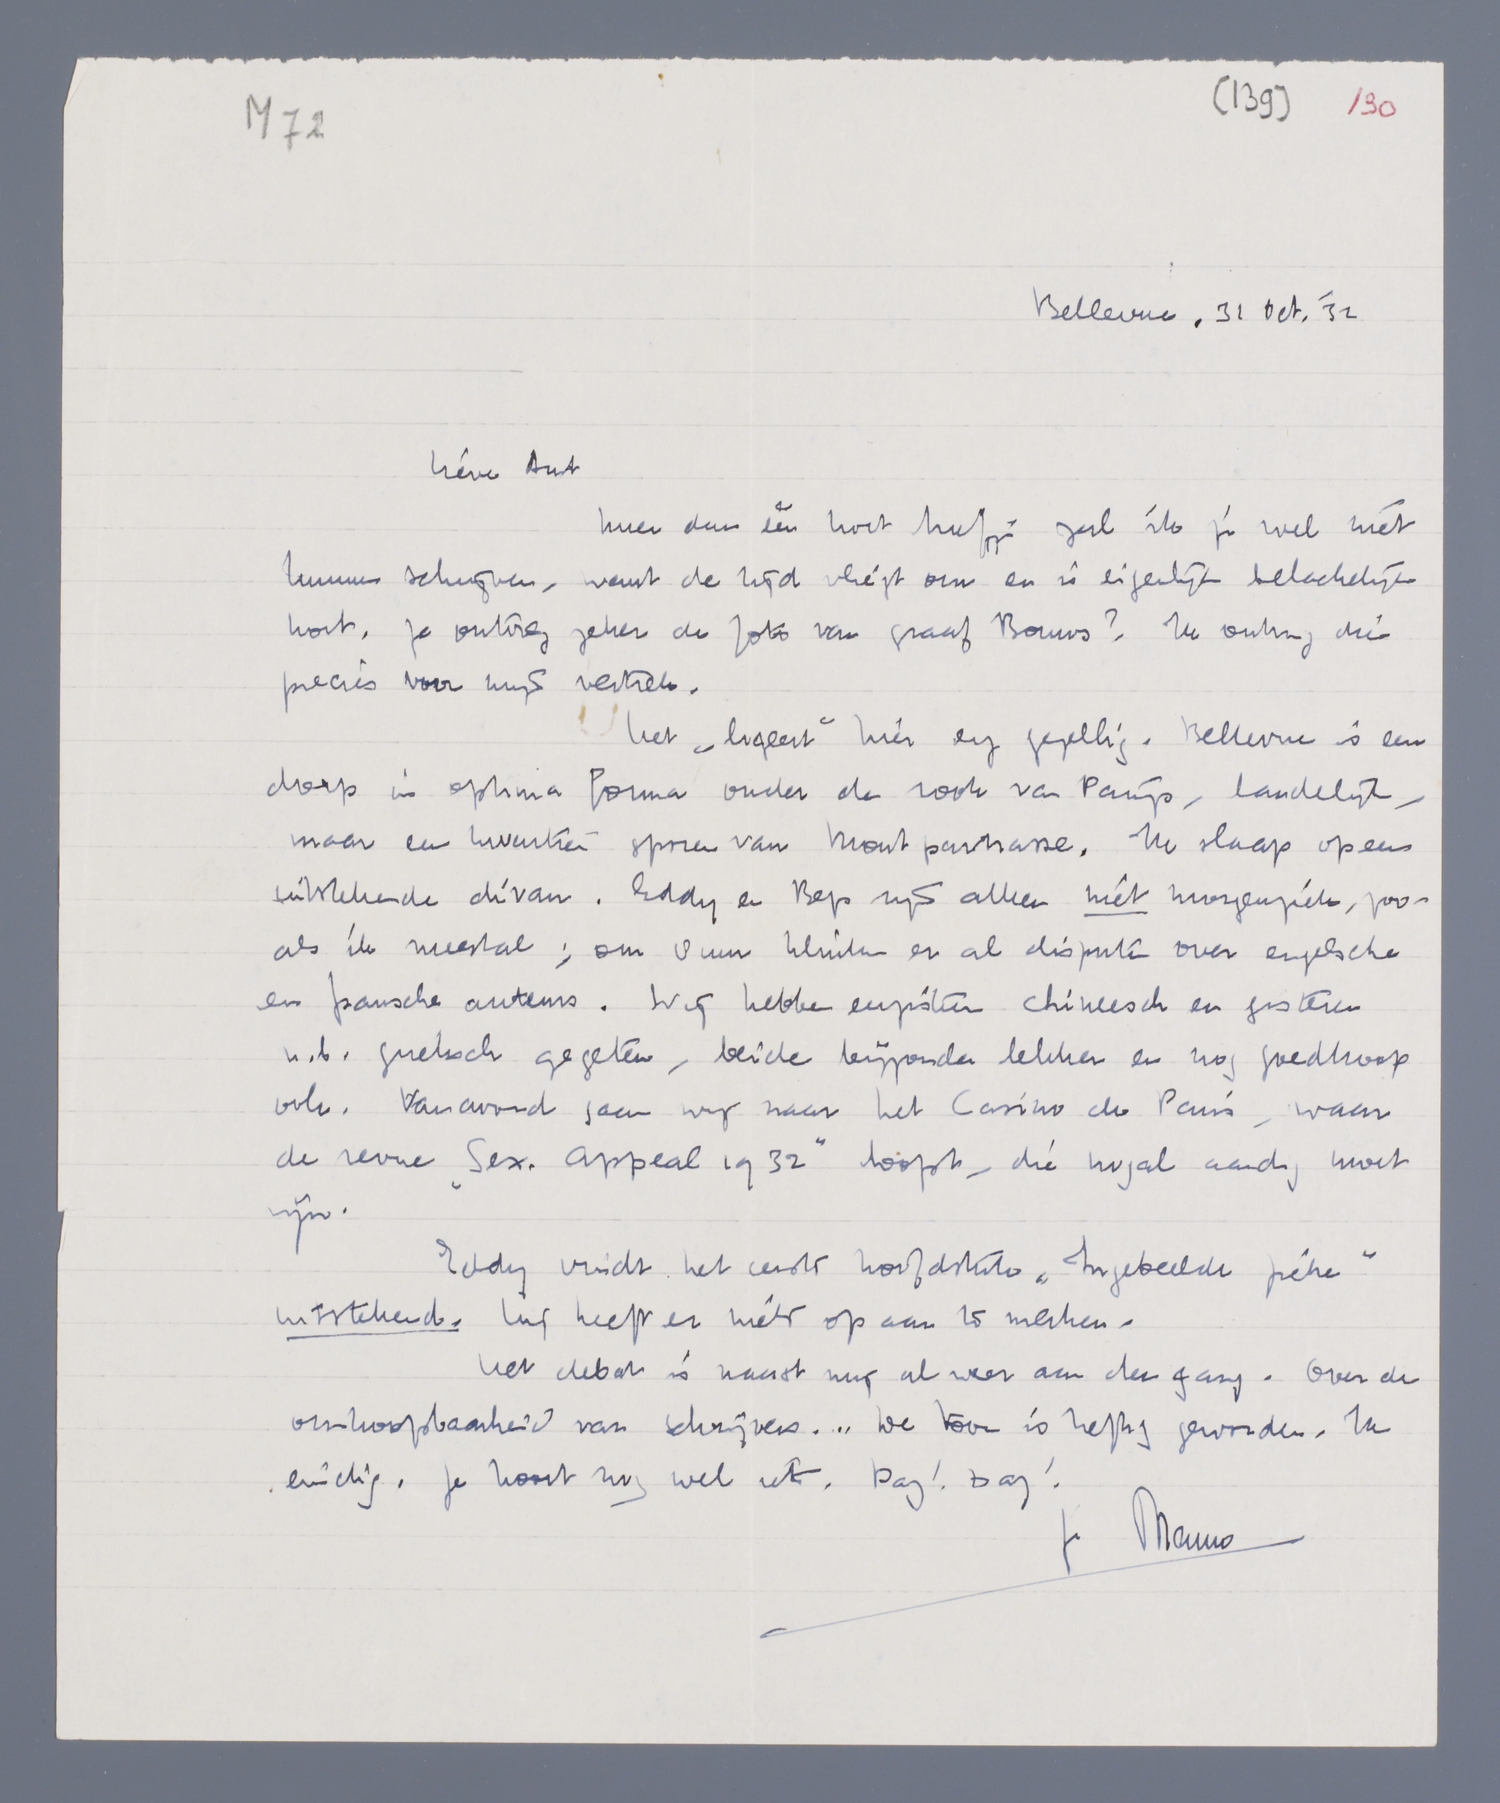 M 72
(139) 130
Bellevue, 31 Oct. '32
Lieve Ant
meer dan één kort briefje zal ik je wel niet
kunnen schrijven, want de tijd vliegt om en is eigenlijk belachelijk
kort. Je ontving zeker de foto van graaf Bouws? Ik ontving die
precies voor mijn vertrek.
Het „logeert” hier erg gezellig. Bellevue is een
dorp in optima forma onder de rook van Parijs, landelijk,
maar een kwartier sporen van Montparnasse. Ik slaap op een
uitstekende divan. Eddy en Bep zijn alleen niet morgenziek, zoo-
als ik meestal; om 8 uur klinken er al disputen over engelsche
en fransche auteurs. Wij hebben eergisteren chineesch en gisteren
n.b. grieksch gegeten, beide bijzonder lekker en nog goedkoop
ook. Vanavond gaan wij naar het Casino de Paris, waar
de revue „Sex. Appeal 1932” loopt, die nogal aardig moet
zijn.
Eddy vindt het eerste hoofdstuk „Ingebeelde zieke”
uitstekend. Hij heeft er niets op aan te merken.
Het debat is naast mij al weer aan den gang. Over de
omkoopbaarheid van schrijvers... De toon is heftig geworden. Ik
eindig. Je hoort nog wel iets. Dag! Dag!
je Menno